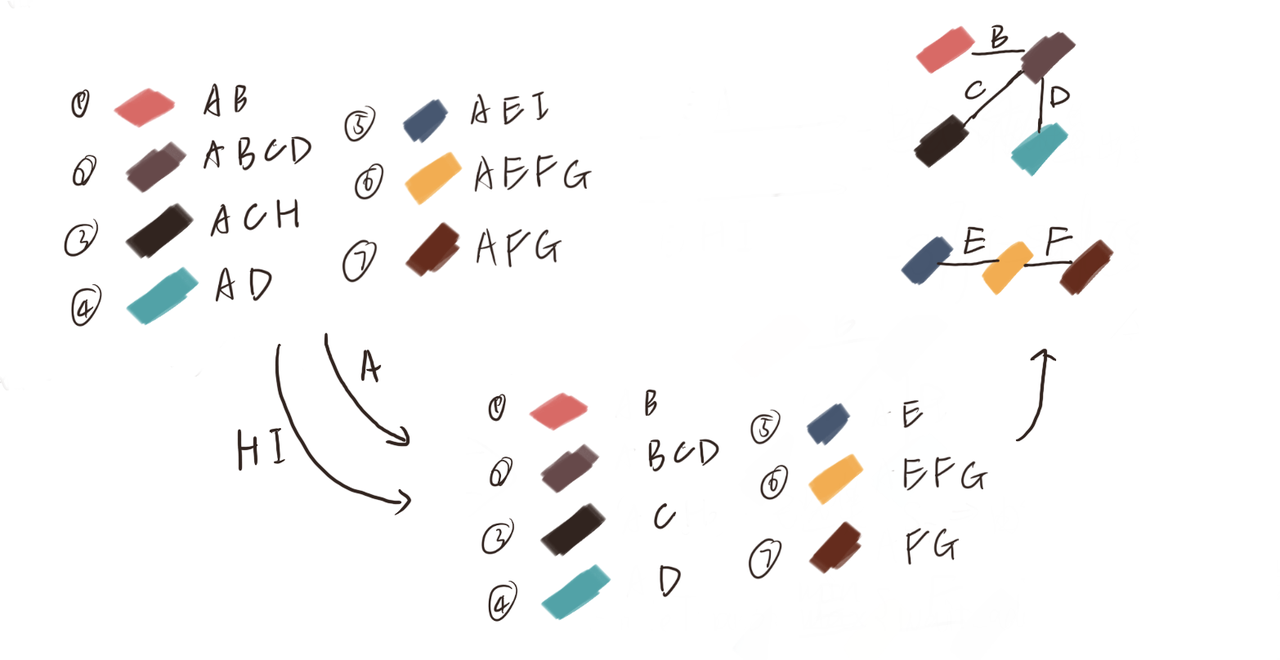 ① AB
② ABCD
③ ACH
④ AD
⑤ AEI
⑥ AEFG
⑦ AFG
A
HI
① B
② BCD
③ C
④ D
⑤ E
⑥ EFG
⑦ FG
B
C
D
E F